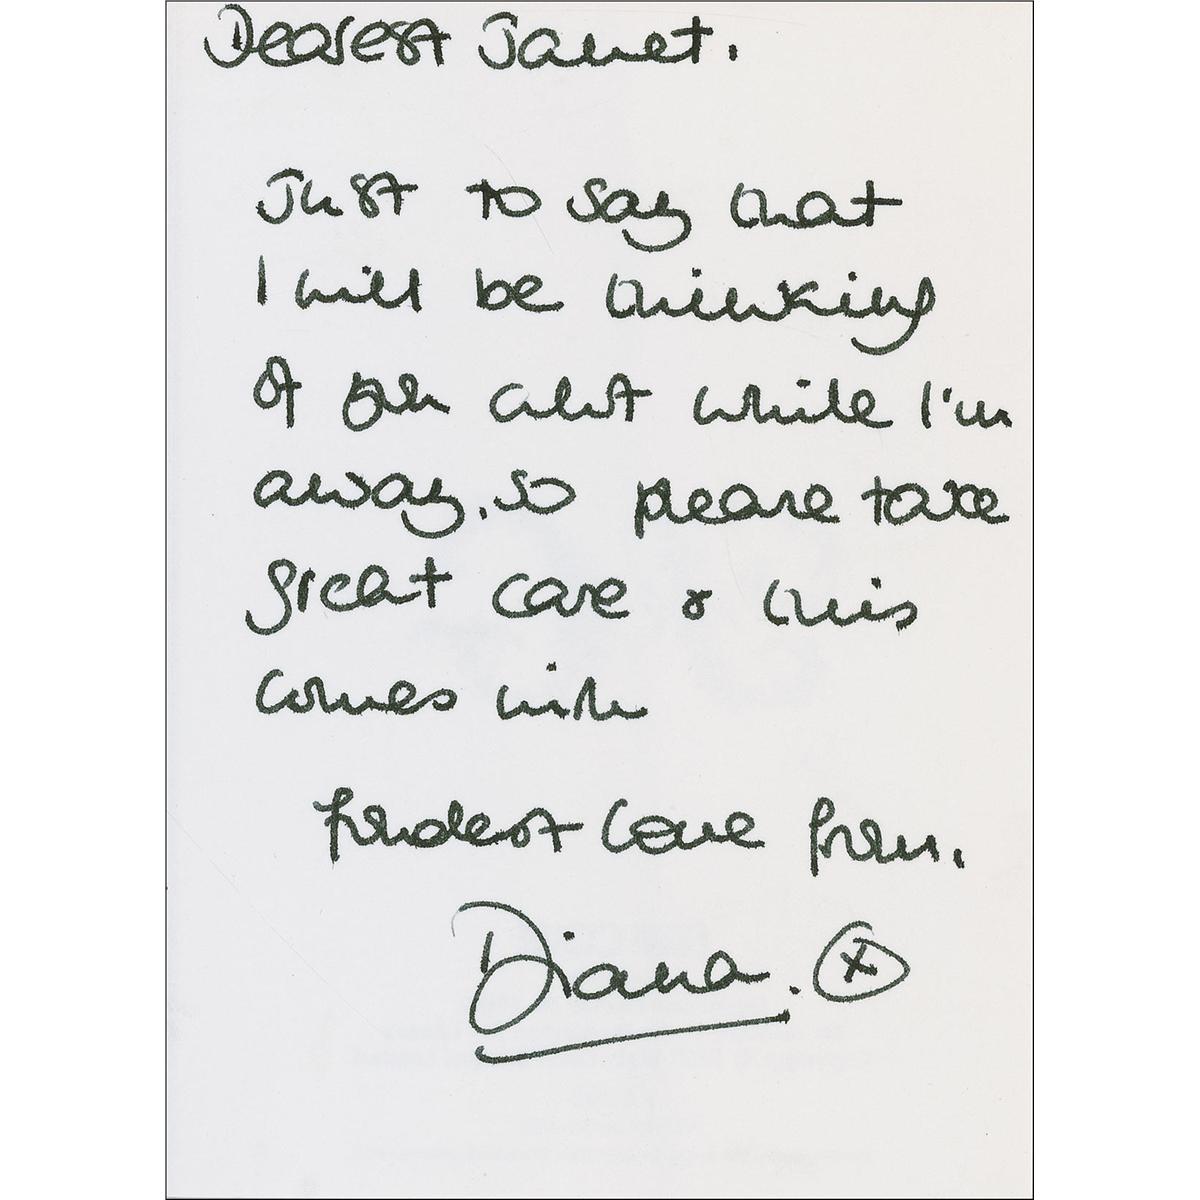 Dearest Janet.
Just to say that
I will be thinking
of you alot while I'm
away, so please take
great care & this
comes with
fondest love from.
Diana. x